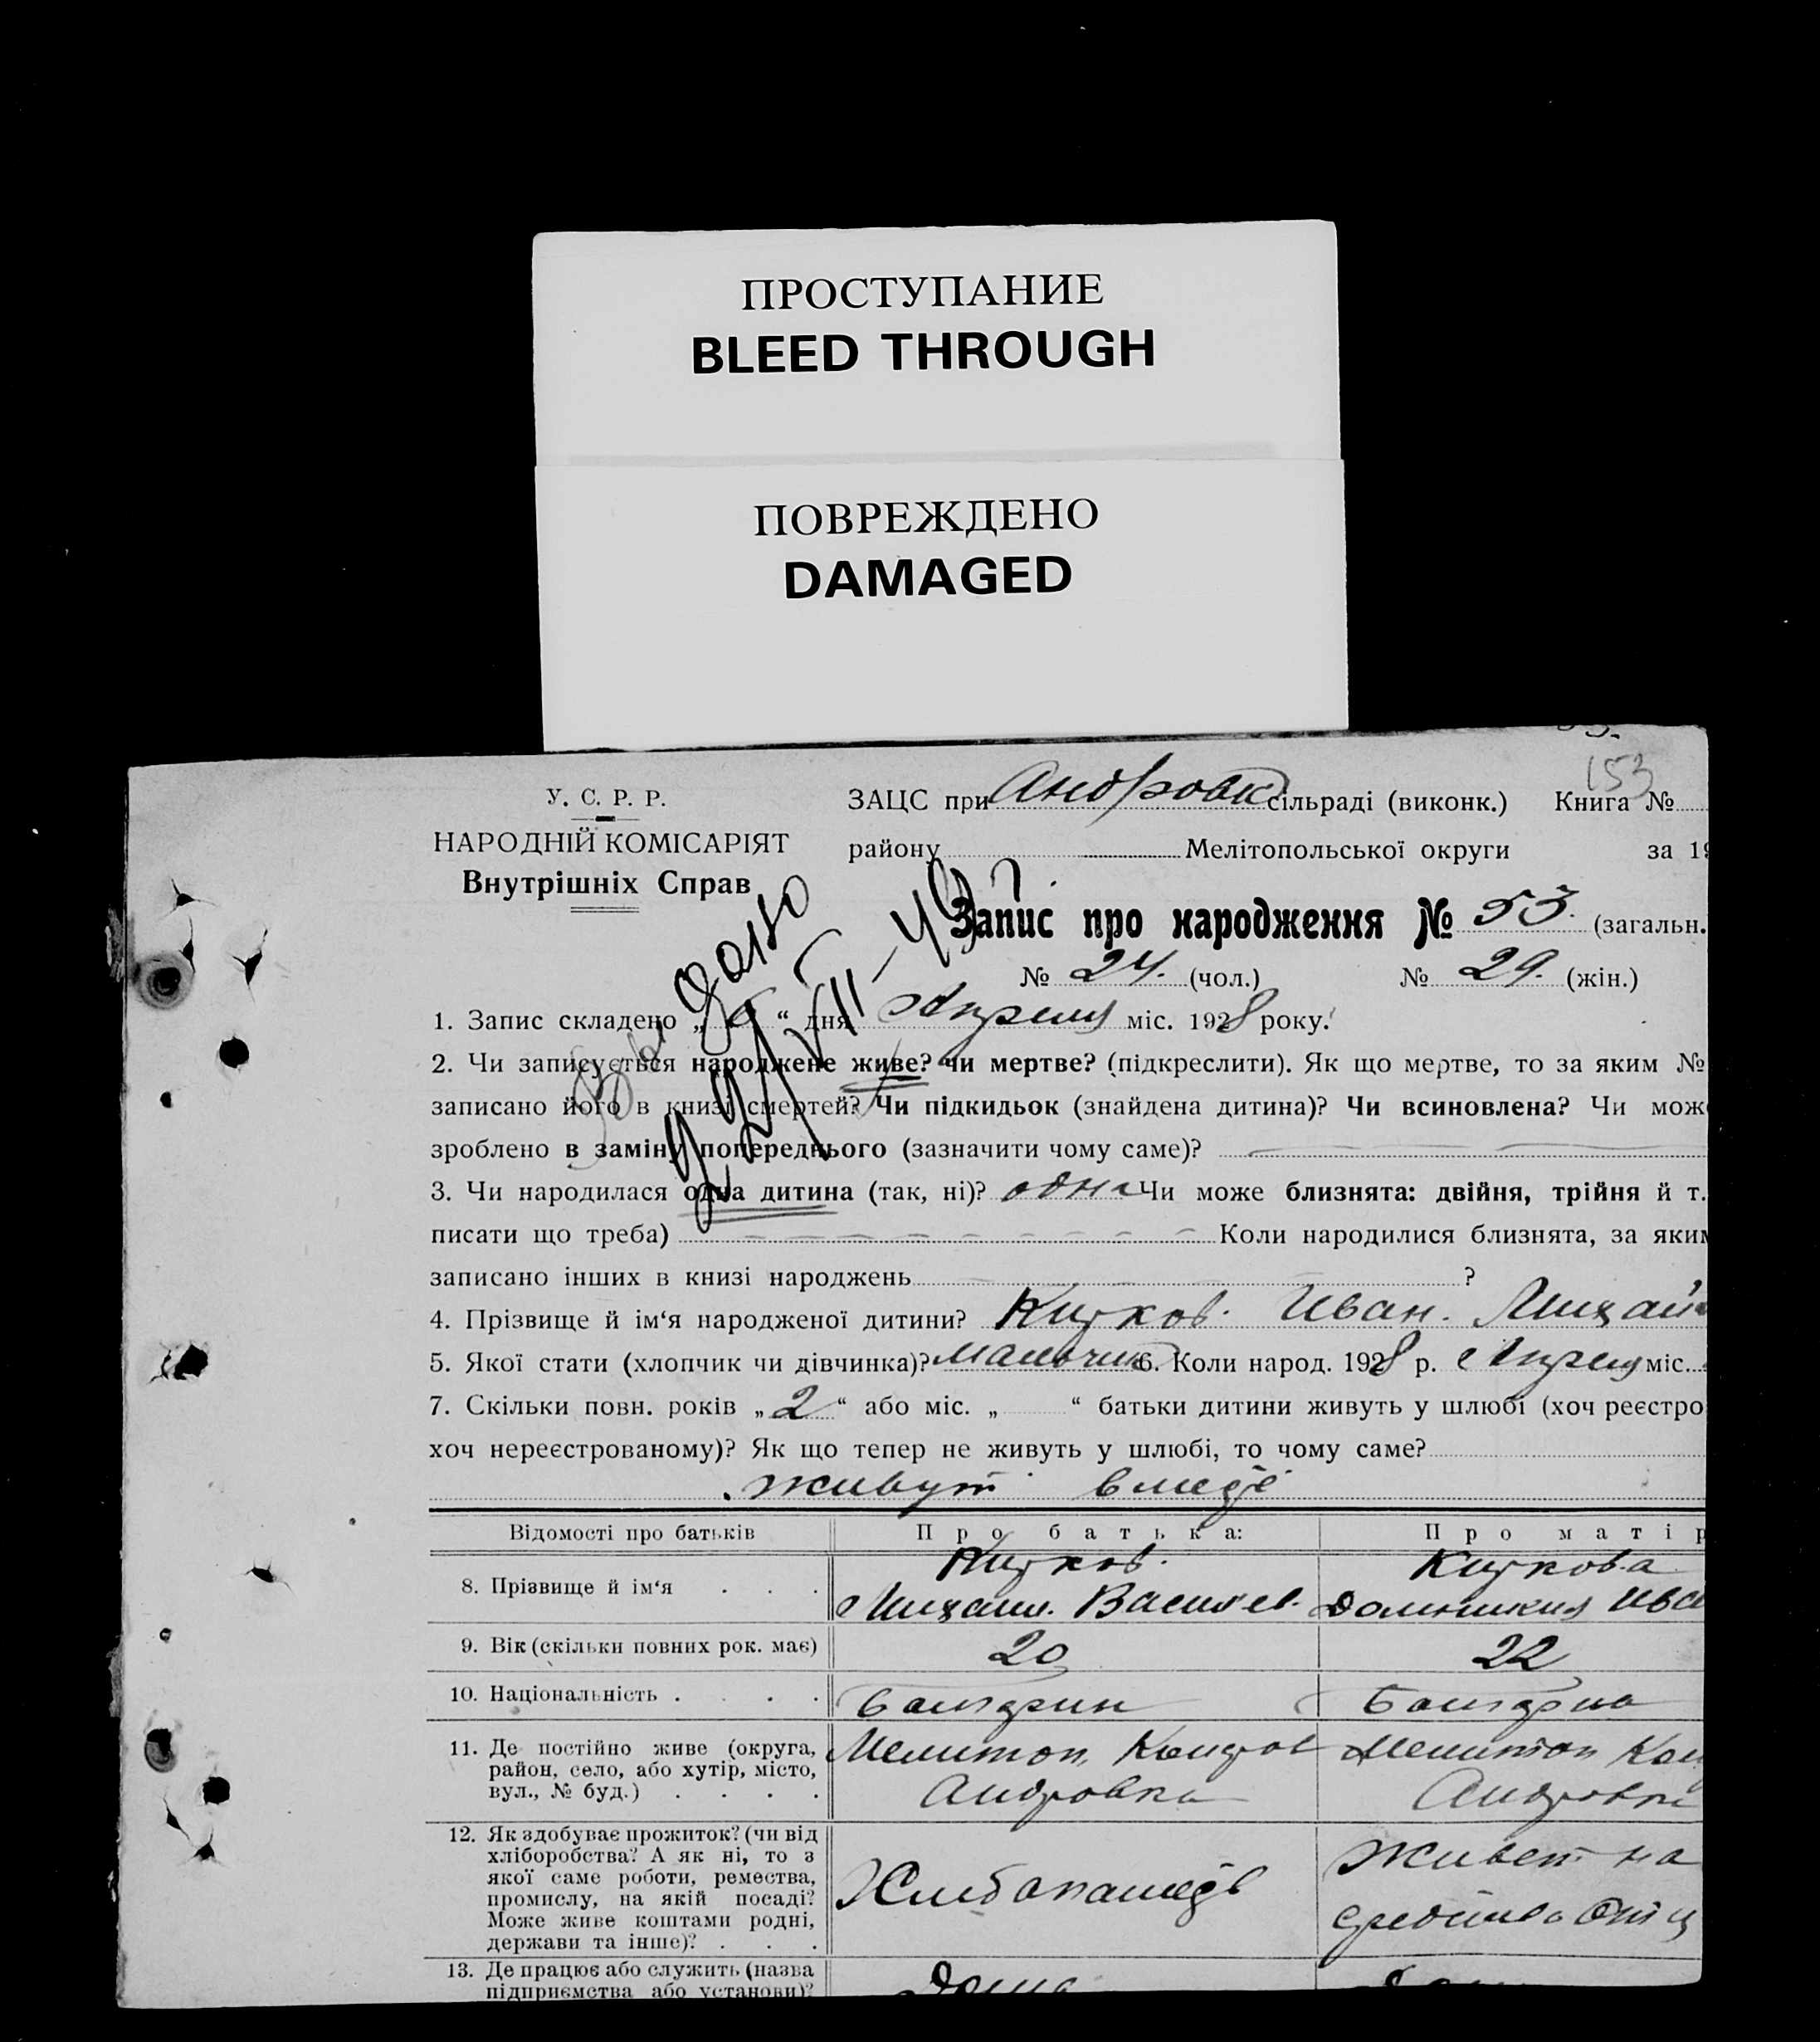 ПРОСТУПАНИЕ
BLEED THROUGH
ПОВРЕЖДЕНО
DAMAGED
153
У. С. Р. Р.
НАРОДНІЙ КОМІСАРІЯТ
Внутрішніх Справ
ЗАЦС при Андровк сільраді (виконк.) Книга №
району Мелітопольської округи за 19
Запис про народження № 53. (загальн.
№ 24. (чол.) № 29. (жін.)
1. Запис складено „ 6 “ дня Апреля міс. 1928 року.
2. Чи записується народжене живе? чи мертве? (підкреслити). Як що мертве, то за яким №
записано його в книзі смертей? Чи підкидьок (знайдена дитина)? Чи всиновлена? Чи мож
зроблено в заміну попереднього (зазначити чому саме)?
3. Чи народилася одна дитина (так, ні)? одна Чи може близнята: двійня, трійня й т.
писати що треба) Коли народилися близнята, за яким
записано інших в книзі народжень ?
4. Прізвище й ім‘я народженої дитини? Иван.
5. Якої стати (хлопчик чи дівчинка)? мальчик 6. Коли народ. 1928 р. Апреля міс.
7. Скільки повн. років „ 2 “ або міс. „ “ батьки дитини живуть у шлюбі (хоч реєстро
хоч нереєстрованому)? Як що тепер не живуть у шлюбі, то чому саме?
живут
Відомості про батьків Про батька: Про матір
8. Прізвище й ім‘я . . .
Михаил. Васильев.
9. Вік (скільки повних рок. має) 20 22
10. Національність . . . . Болгарин Болгарка
11. Де постійно живе (округа,
район, село, або хутір, місто,
вул., № буд.) . . . .
Мелитоп,
Андровка
Мелитоп
Андровка
12. Як здобуває прожиток? (чи від
хліборобства? А як ні, то з
якої саме роботи, ремества,
промислу, на якій посаді?
Може живе коштами родні,
держави та інше)? . . .
Живет на
13. Де працює або служить (назва
підприємства або установи)?